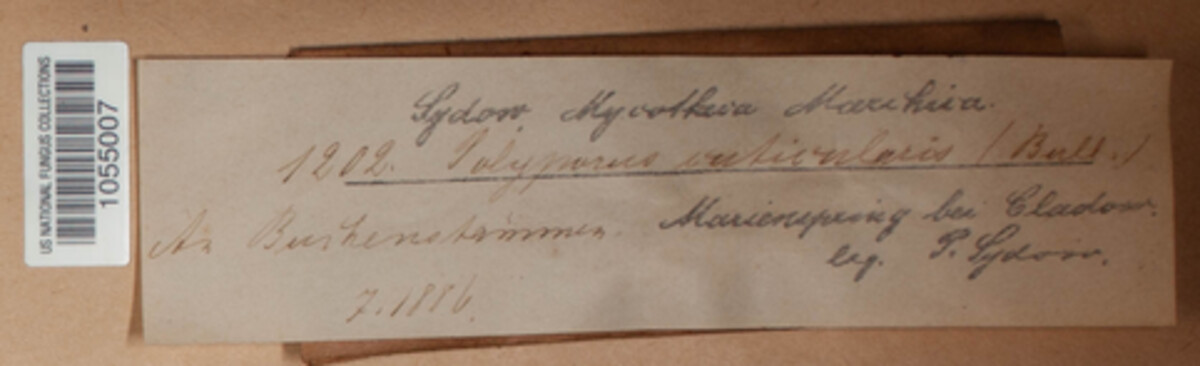 US NATIONAL FUNGUS COLLECTIONS
1055007
Sydow Mycotheca Marchica.
1202. Polyporus cuticularis (Bull.)
An Buchenstämmen. Marienspring bei Cladow.
leg. P. Sydow.
7.1886.